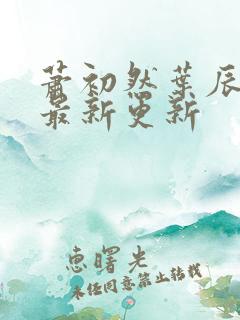 萧初然叶辰
最新更新
惠曙光
未经同意禁止转载